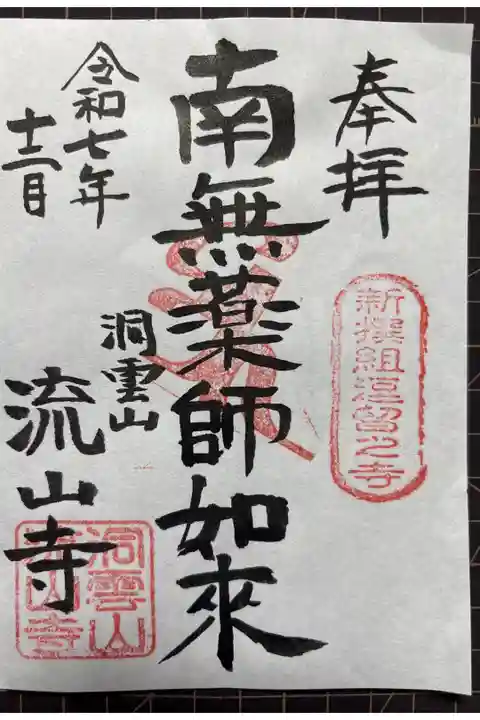 奉拝
新撰組逗留之寺
南無薬師如來
洞雲山
流山寺
令和七年
十二月
洞雲山
流山寺